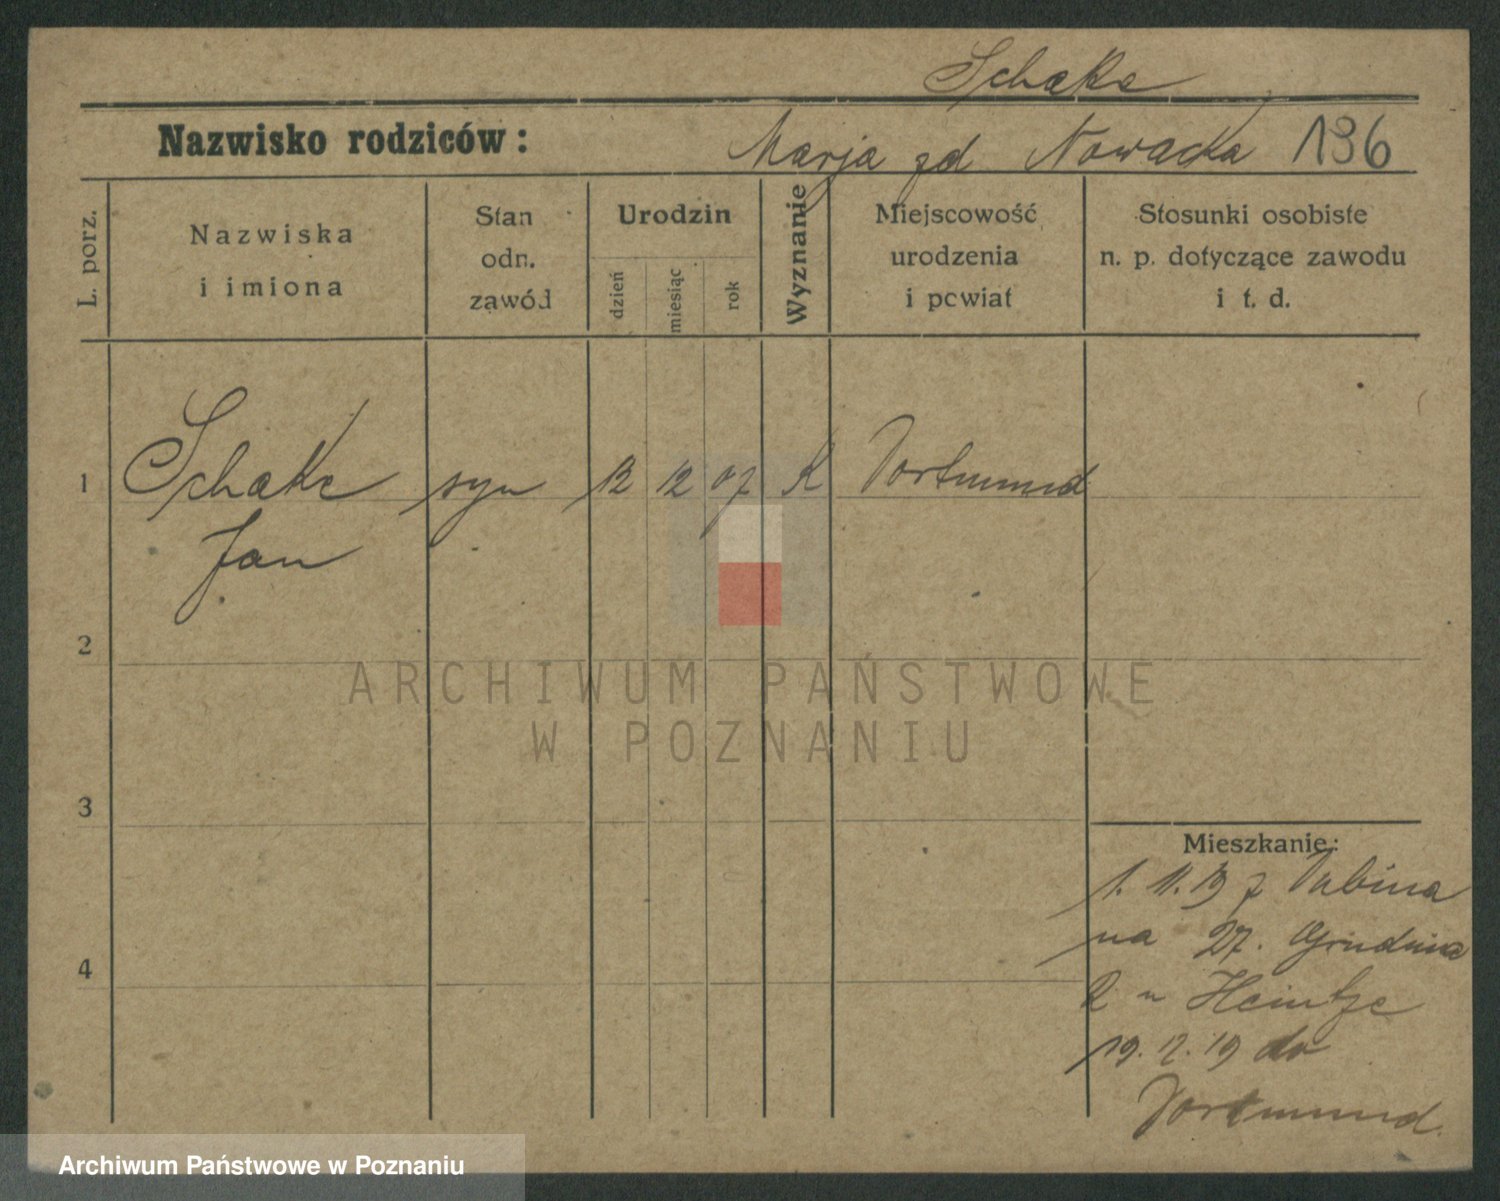 Schake
Nazwisko rodziców:
Marja zd Nowacka 136
L. porz.
Nazwiska
i imiona
Stan
odn.
zawód
Urodzin
dzień
miesiąc
rok
Wyznanie
Miejscowość
urodzenia
i powiat
Stosunki osobiste
n. p. dotyczące zawodu
i t. d.
1
Schake
Jan
syn
12
07
K
Dortmund
2
3
4
Mieszkanie:
1. 11. 19 z Dubina
na 27. Grudnia
2 u Heintze
do
Dortmund.
ARCHIWUM PAŃSTWOWE
W POZNANIU
Archiwum Państwowe w Poznaniu